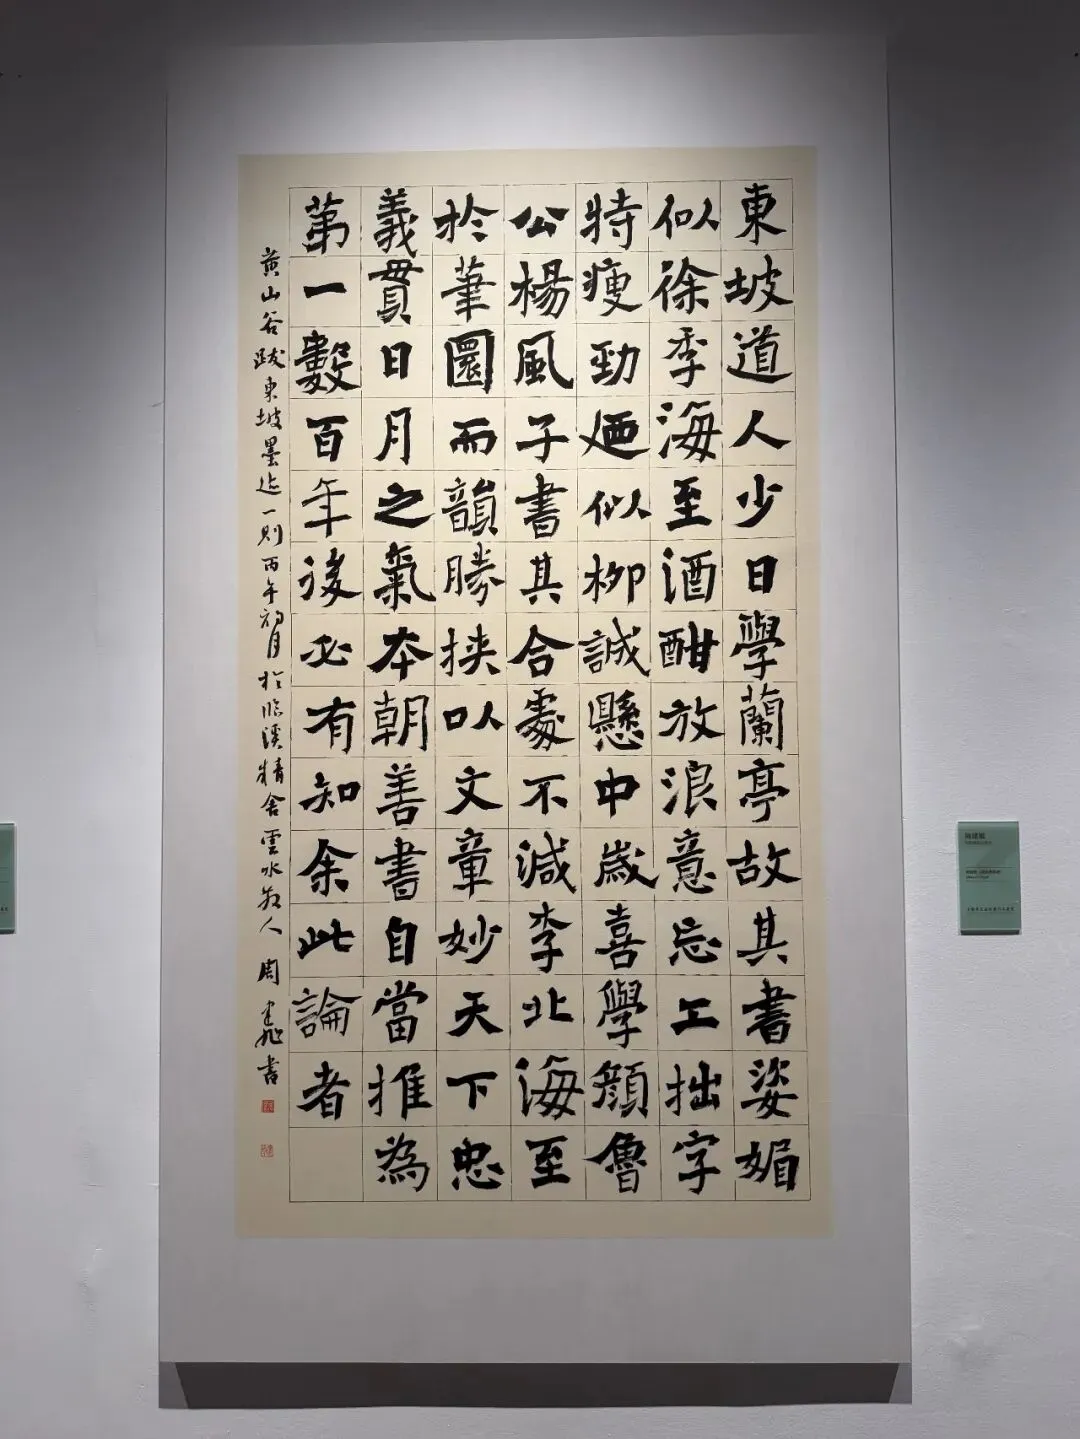 東坡道人少日學蘭亭故其書姿媚
似徐季海至酒酣放浪意忘工拙字
特瘦勁廼似柳誠懸中歲喜學顏魯
公楊風子書其合處不減李北海至
於筆圜而韻勝挾以文章妙天下忠
義貫日月之氣本朝善書自當推為
第一數百年後必有知余此論者
黃山谷跋東坡墨迹一則丙午初月於臨溪精舍雲水散人周建飛書